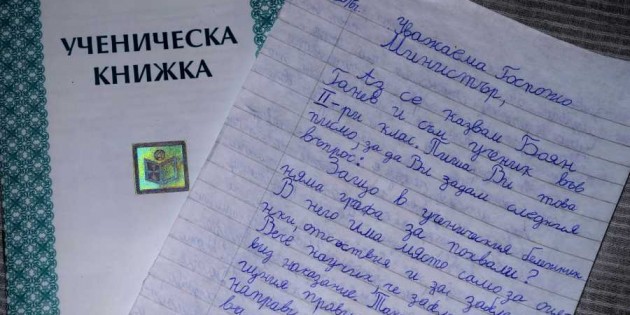 УЧЕНИЧЕСКА
КНИЖКА
Уважаема Госпожо
Министър,
Аз се казвам Боян
Ганев и съм ученик във
II-ри клас. Пиша Ви това
писмо, за да Ви задам следния
въпрос:
Защо в ученическия бележник
няма графа за похвали?
В него има място само за оцен-
ки, отсъствия и за забле
Вече научих, че забле
вид наказание.
гиния прави
направи